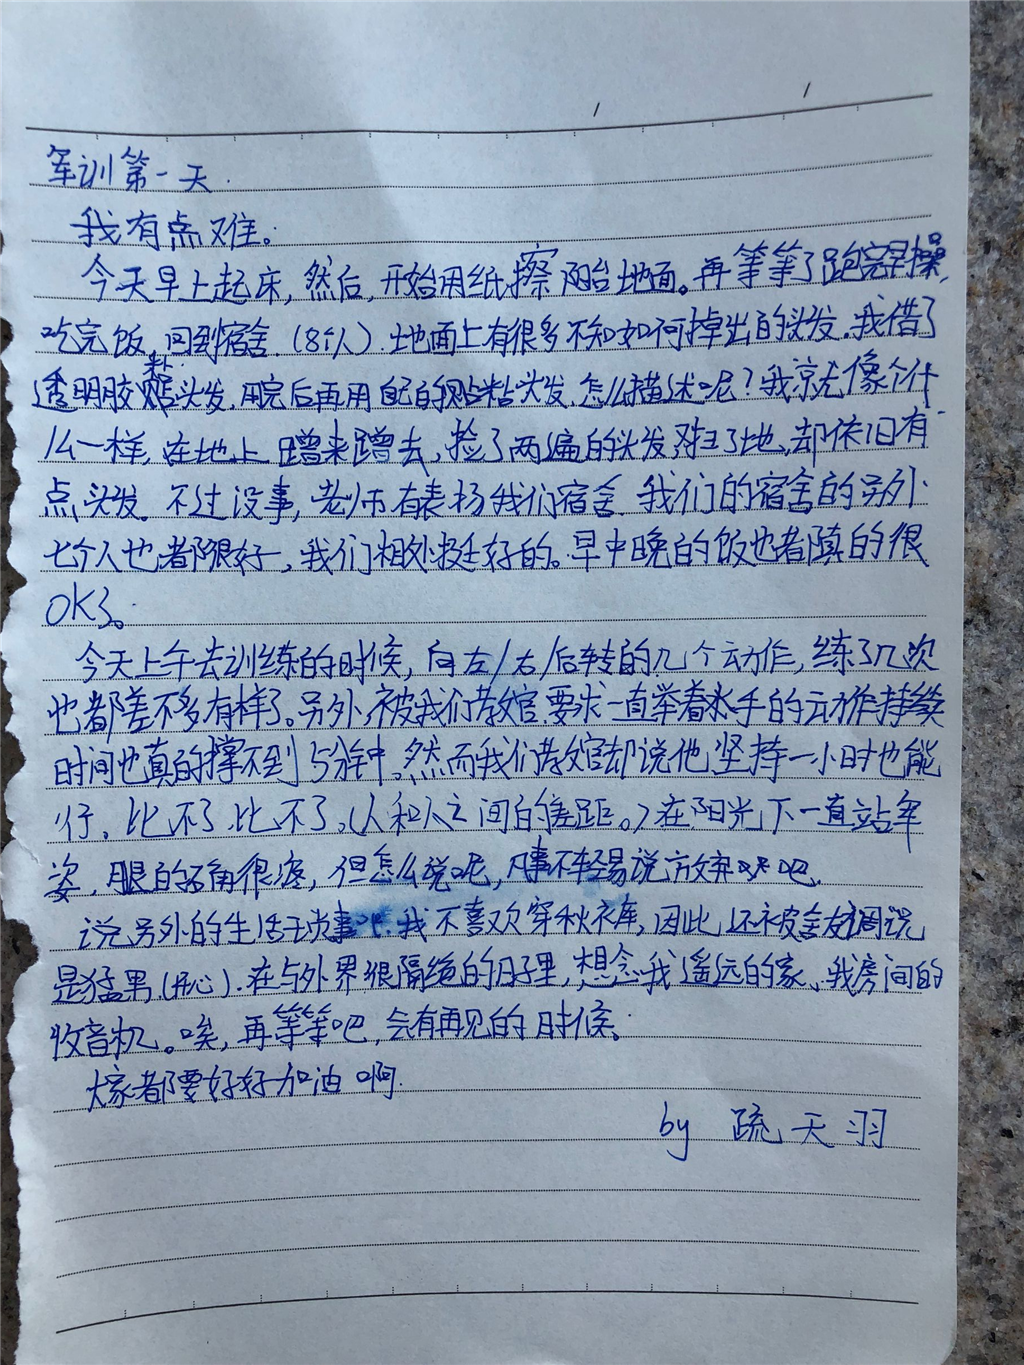 军训第一天.
我有点难。
今天早上起床,然后,开始用纸擦阳台地面。再等等了跑完早操,
吃完饭,回到宿舍.(8个人).地面上有很多不知如何掉出的头发.我借了
透明胶粘头发.用完后再用自己的贴粘头发.怎么描述呢?我就像个什
么一样,在地上蹭来蹭去,捡了两遍的头发,扫了地,却依旧有
点头发。不过没事,老师有表扬我们宿舍.我们的宿舍的另外
七个人也都很好,我们相处挺好的。早中晚的饭也都真的很
OK了。
今天上午去训练的时候,向左/右/后转的几个动作,练了几次
也都差不多有样了。另外,被我们教官要求一直举着水手的动作持续
时间也真的撑不到5分钟。然而我们教官却说他坚持一小时也能
行。比不了,比不了。(人和人之间的差距。)在阳光下一直站军
姿,腿的不角很疼,但怎么说呢,凡事不轻易说放弃吧.
说另外的生活琐事吧.我不喜欢穿秋衣库,因此还被舍友调说
是猛男(开心).在与外界很隔绝的日子里,想念我遥远的家、我房间的
收音机。唉,再等等吧,会有再见的时候。
大家都要好好加油啊.
by 疏天羽